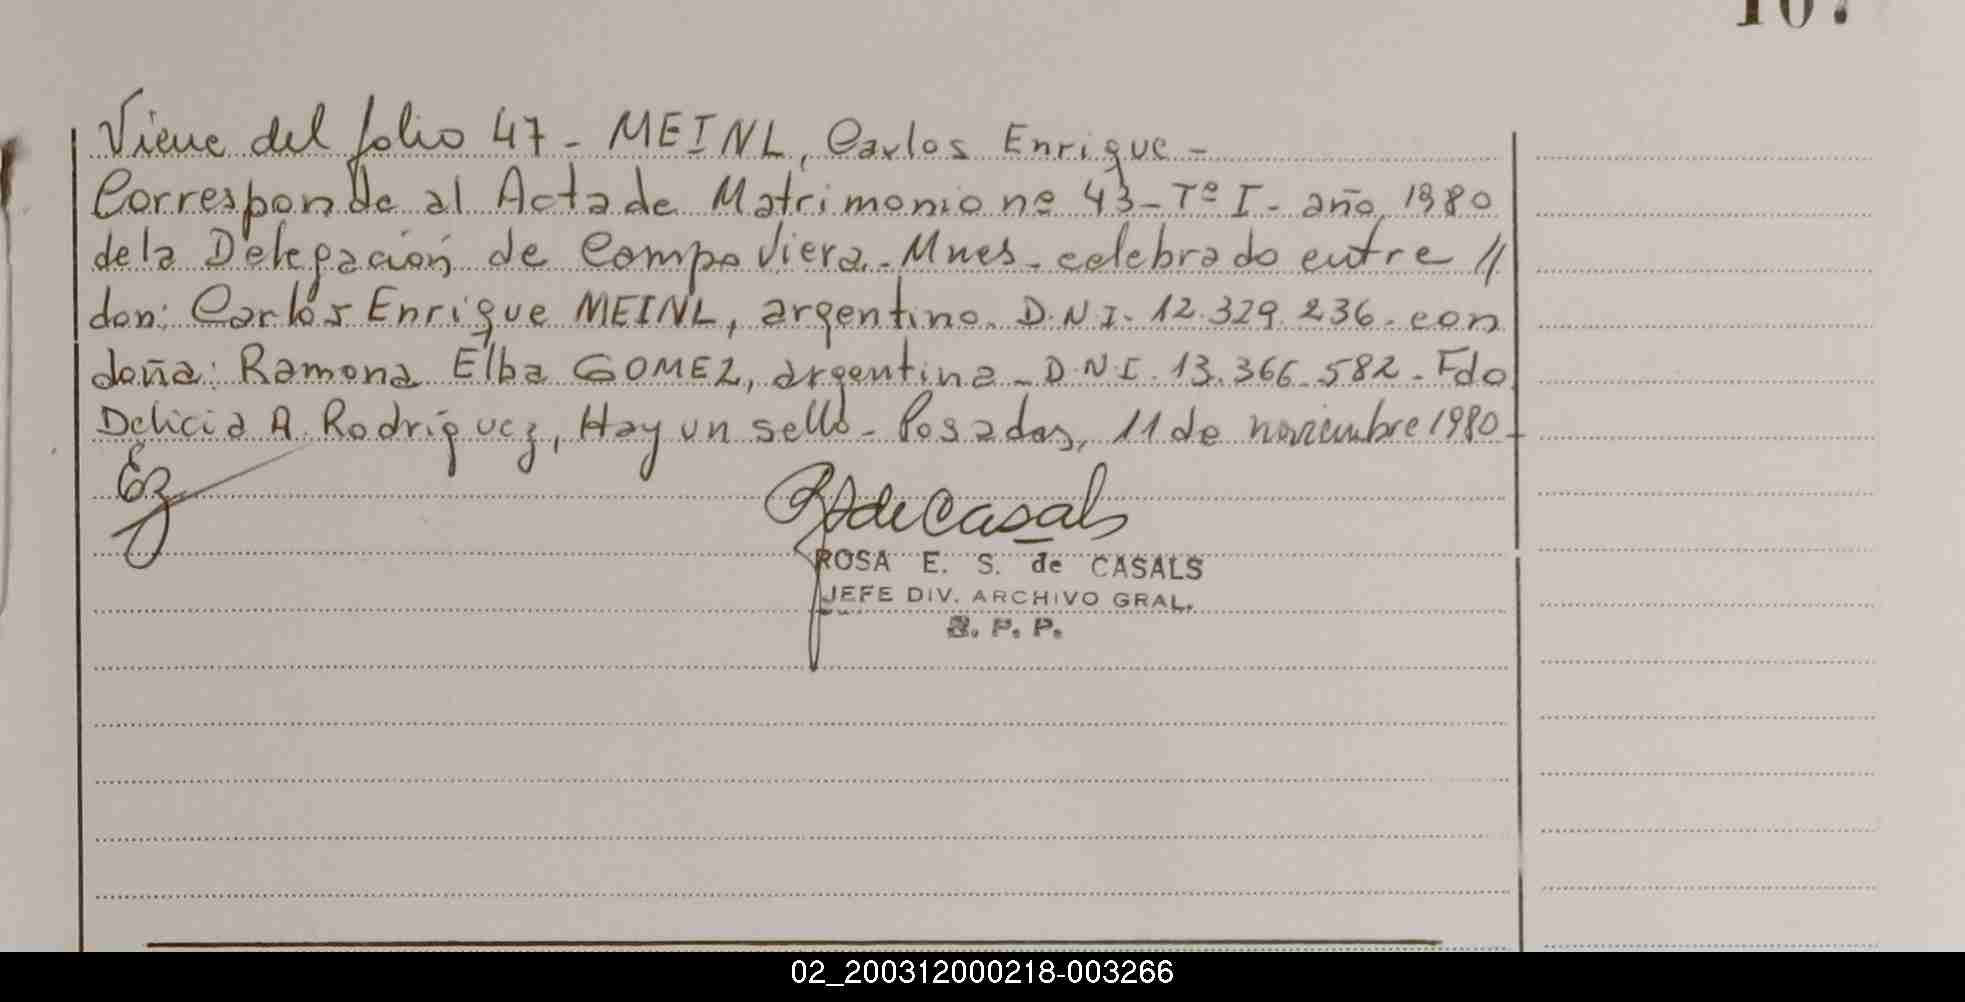 107
Viene del folio 47 - MEINL, Carlos Enrique -
Corresponde al Acta de Matrimonio nº 43 - Tº I - año 1980
de la Delegación de Campo Viera - Mnes - celebrado entre //
don: Carlos Enrique MEINL, argentino. D.N.I. 12.329.236 - con
doña: Ramona Elba GOMEZ, argentina - D.N.I. 13.366.582 - Fdo
Delicia A. Rodríguez, Hay un sello - Posadas, 11 de noviembre 1980
de Casals
ROSA E. S. de CASALS
JEFE DIV. ARCHIVO GRAL.
R. P. P.
02_200312000218-003266